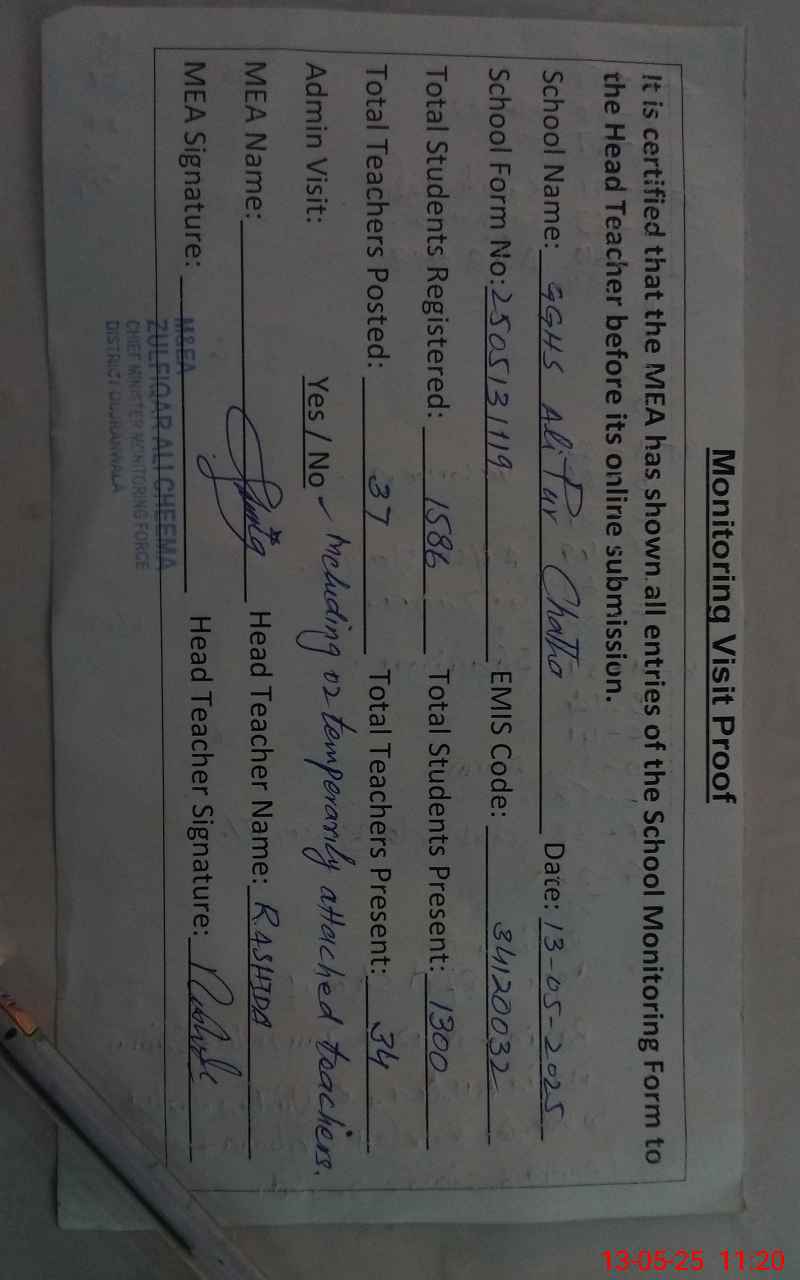 Monitoring Visit Proof
It is certified that the MEA has shown all entries of the School Monitoring Form to
the Head Teacher before its online submission.
School Name: GGHS Ali Pur Chatha Date: 13-05-2025
School Form No: 2505131119 EMIS Code: 34120032
Total Students Registered: 1586 Total Students Present: 1300
Total Teachers Posted: 37 Total Teachers Present: 34
Admin Visit: Yes / No ✓ Including 02 temperarily attached teachers.
MEA Name: Head Teacher Name: RASHIDA
MEA Signature: Head Teacher Signature:
M&EA
ZULFIQAR ALI CHEEMA
CHIEF MINISTER MONITORING FORCE
DISTRICT GUJRANWALA
13-05-25 11:20